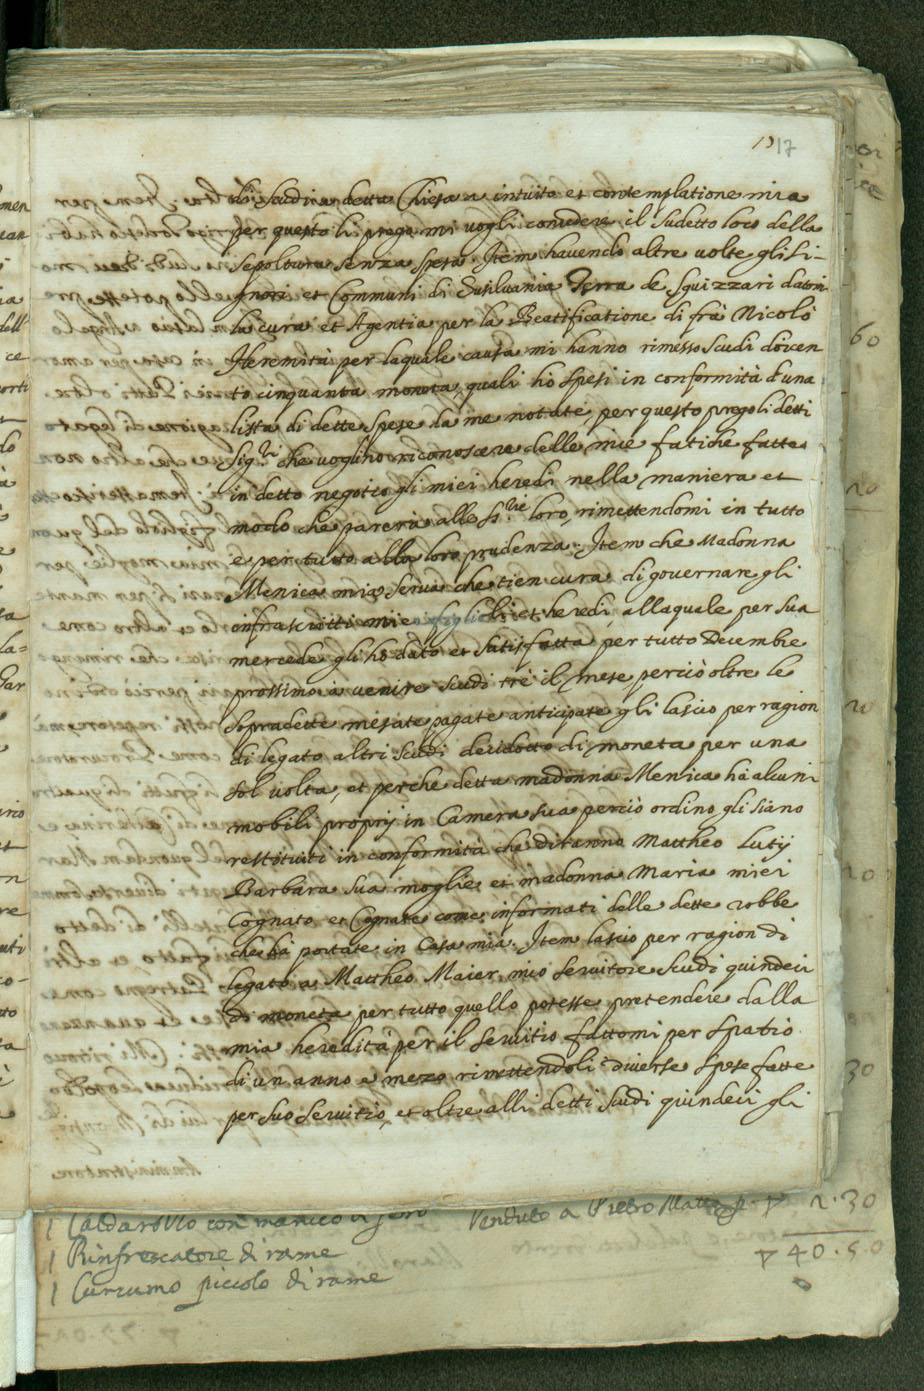 17
di scudi in detta Chiesa a intuito et contemplatione mia
per questo li prego mi vogli concedere il sudetto loco della
sepoltura senza spesa. Item havendo altre volte gli Si-
gnori et Communi di Susilvania Terra de Sguizzari datomi
la cura et Agentia per la Beatificatione di frà Nicolò
Heremita per laquale causa mi hanno rimesso scudi ducen
to cinquanta moneta, quali hò spesi in conformità d'una
lista di dette spese da me notate, per questo prego li detti
Sig.ri che voglino riconoscere delle mie fatiche fatte
in detto negotio gli miei heredi nella maniera et
modo che parerà alle SS.rie loro, rimettendomi in tutto
e per tutto alla loro prudenza. Item che Madonna
Menica mia serva che tien cura di governare gli
infrascritti miei figlioli et heredi, allaquale per sua
mercede gli hò dato et satisfatta per tutto Decembre
prossimo à venire scudi tre il mese perciò oltre le
sopradette mesate pagate anticipate gli lascio per ragion
di legato altri scudi deidotto di moneta per una
sol volta, et perche detta madonna Menica hà alcuni
mobili proprij in Camera sua perciò ordino gli siano
restituiti in conformità che diranno Mattheo Lutij
Barbara sua moglie et madonna Maria miei
Cognato et Cognate come informati delle dette robbe
che hà portate in Casa mia. Item lascio per ragion di
legato a Mattheo Maier mio servitore scudi quindeci
di moneta per tutto quello potesse pretendere dalla
mia heredità per il servitio fattomi per spatio
di un anno e mezo rimettendoli diverse spese fatte
per suo servitio, et oltre alli detti scudi quindeci gli
Aministratore
1 Caldarozzo con manico di fero Venduto a Pietro 2.30
1 Rinfrescatore di rame 40.50
1 Curcumo piccolo di rame
60
20
20
20
30